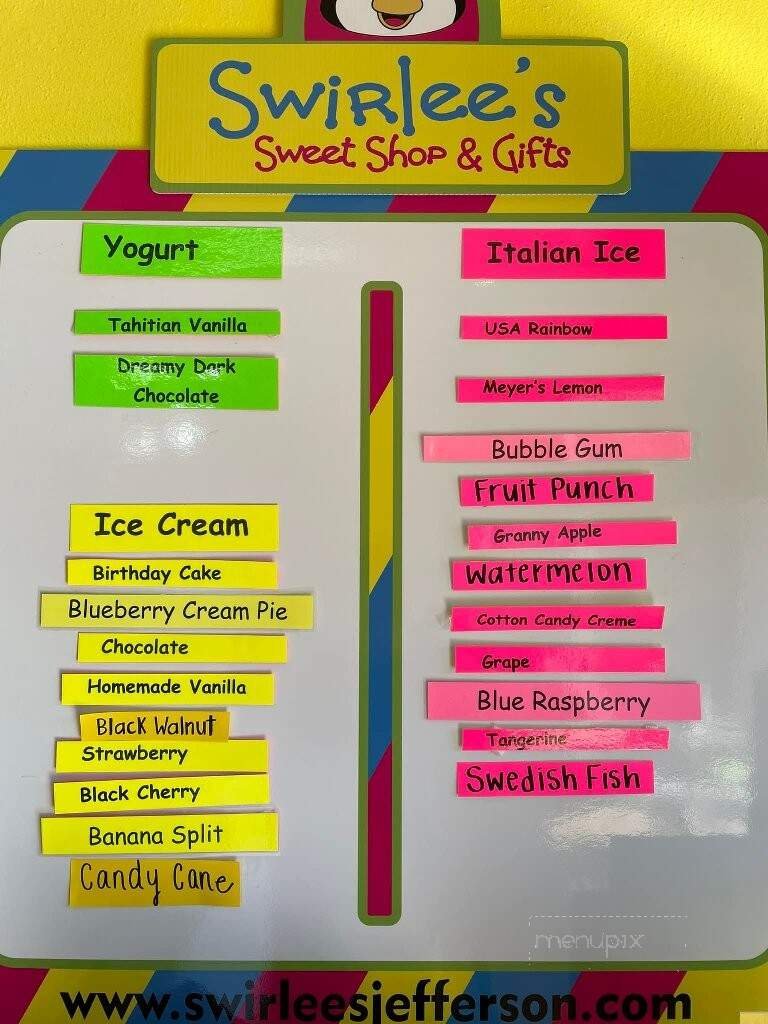 Swirlee's
Sweet Shop & Gifts
Yogurt
Tahitian Vanilla
Dreamy Dark
Chocolate
Ice Cream
Birthday Cake
Blueberry Cream Pie
Chocolate
Homemade Vanilla
Black Walnut
Strawberry
Black Cherry
Banana Split
Candy Cane
Italian Ice
USA Rainbow
Meyer's Lemon
Bubble Gum
Fruit Punch
Granny Apple
Watermelon
Cotton Candy Creme
Grape
Blue Raspberry
Tangerine
Swedish Fish
menupix
www.swirleesjefferson.com